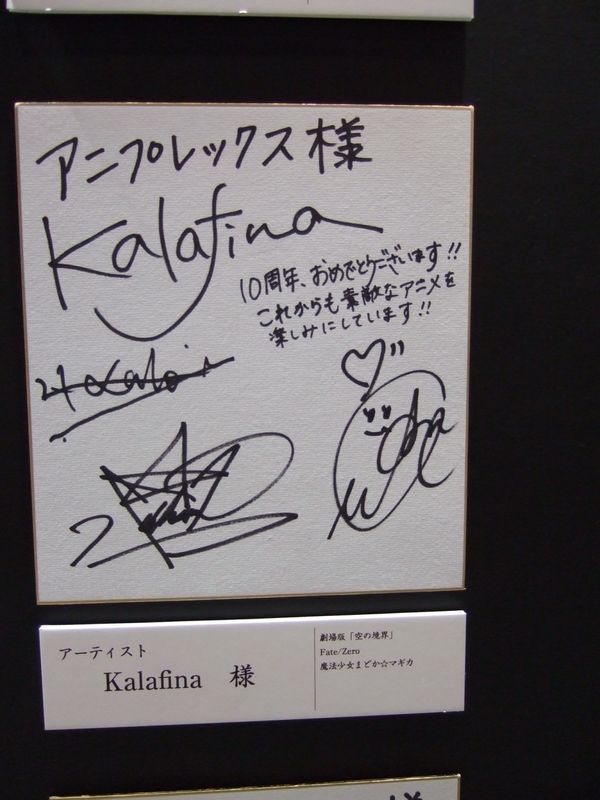 アニプレックス様
Kalafina
10周年、おめでとうございます!!
これからも素敵なアニメを
楽しみにしています!!
アーティスト
Kalafina 様
劇場版「空の境界」
Fate/Zero
魔法少女まどか☆マギカ